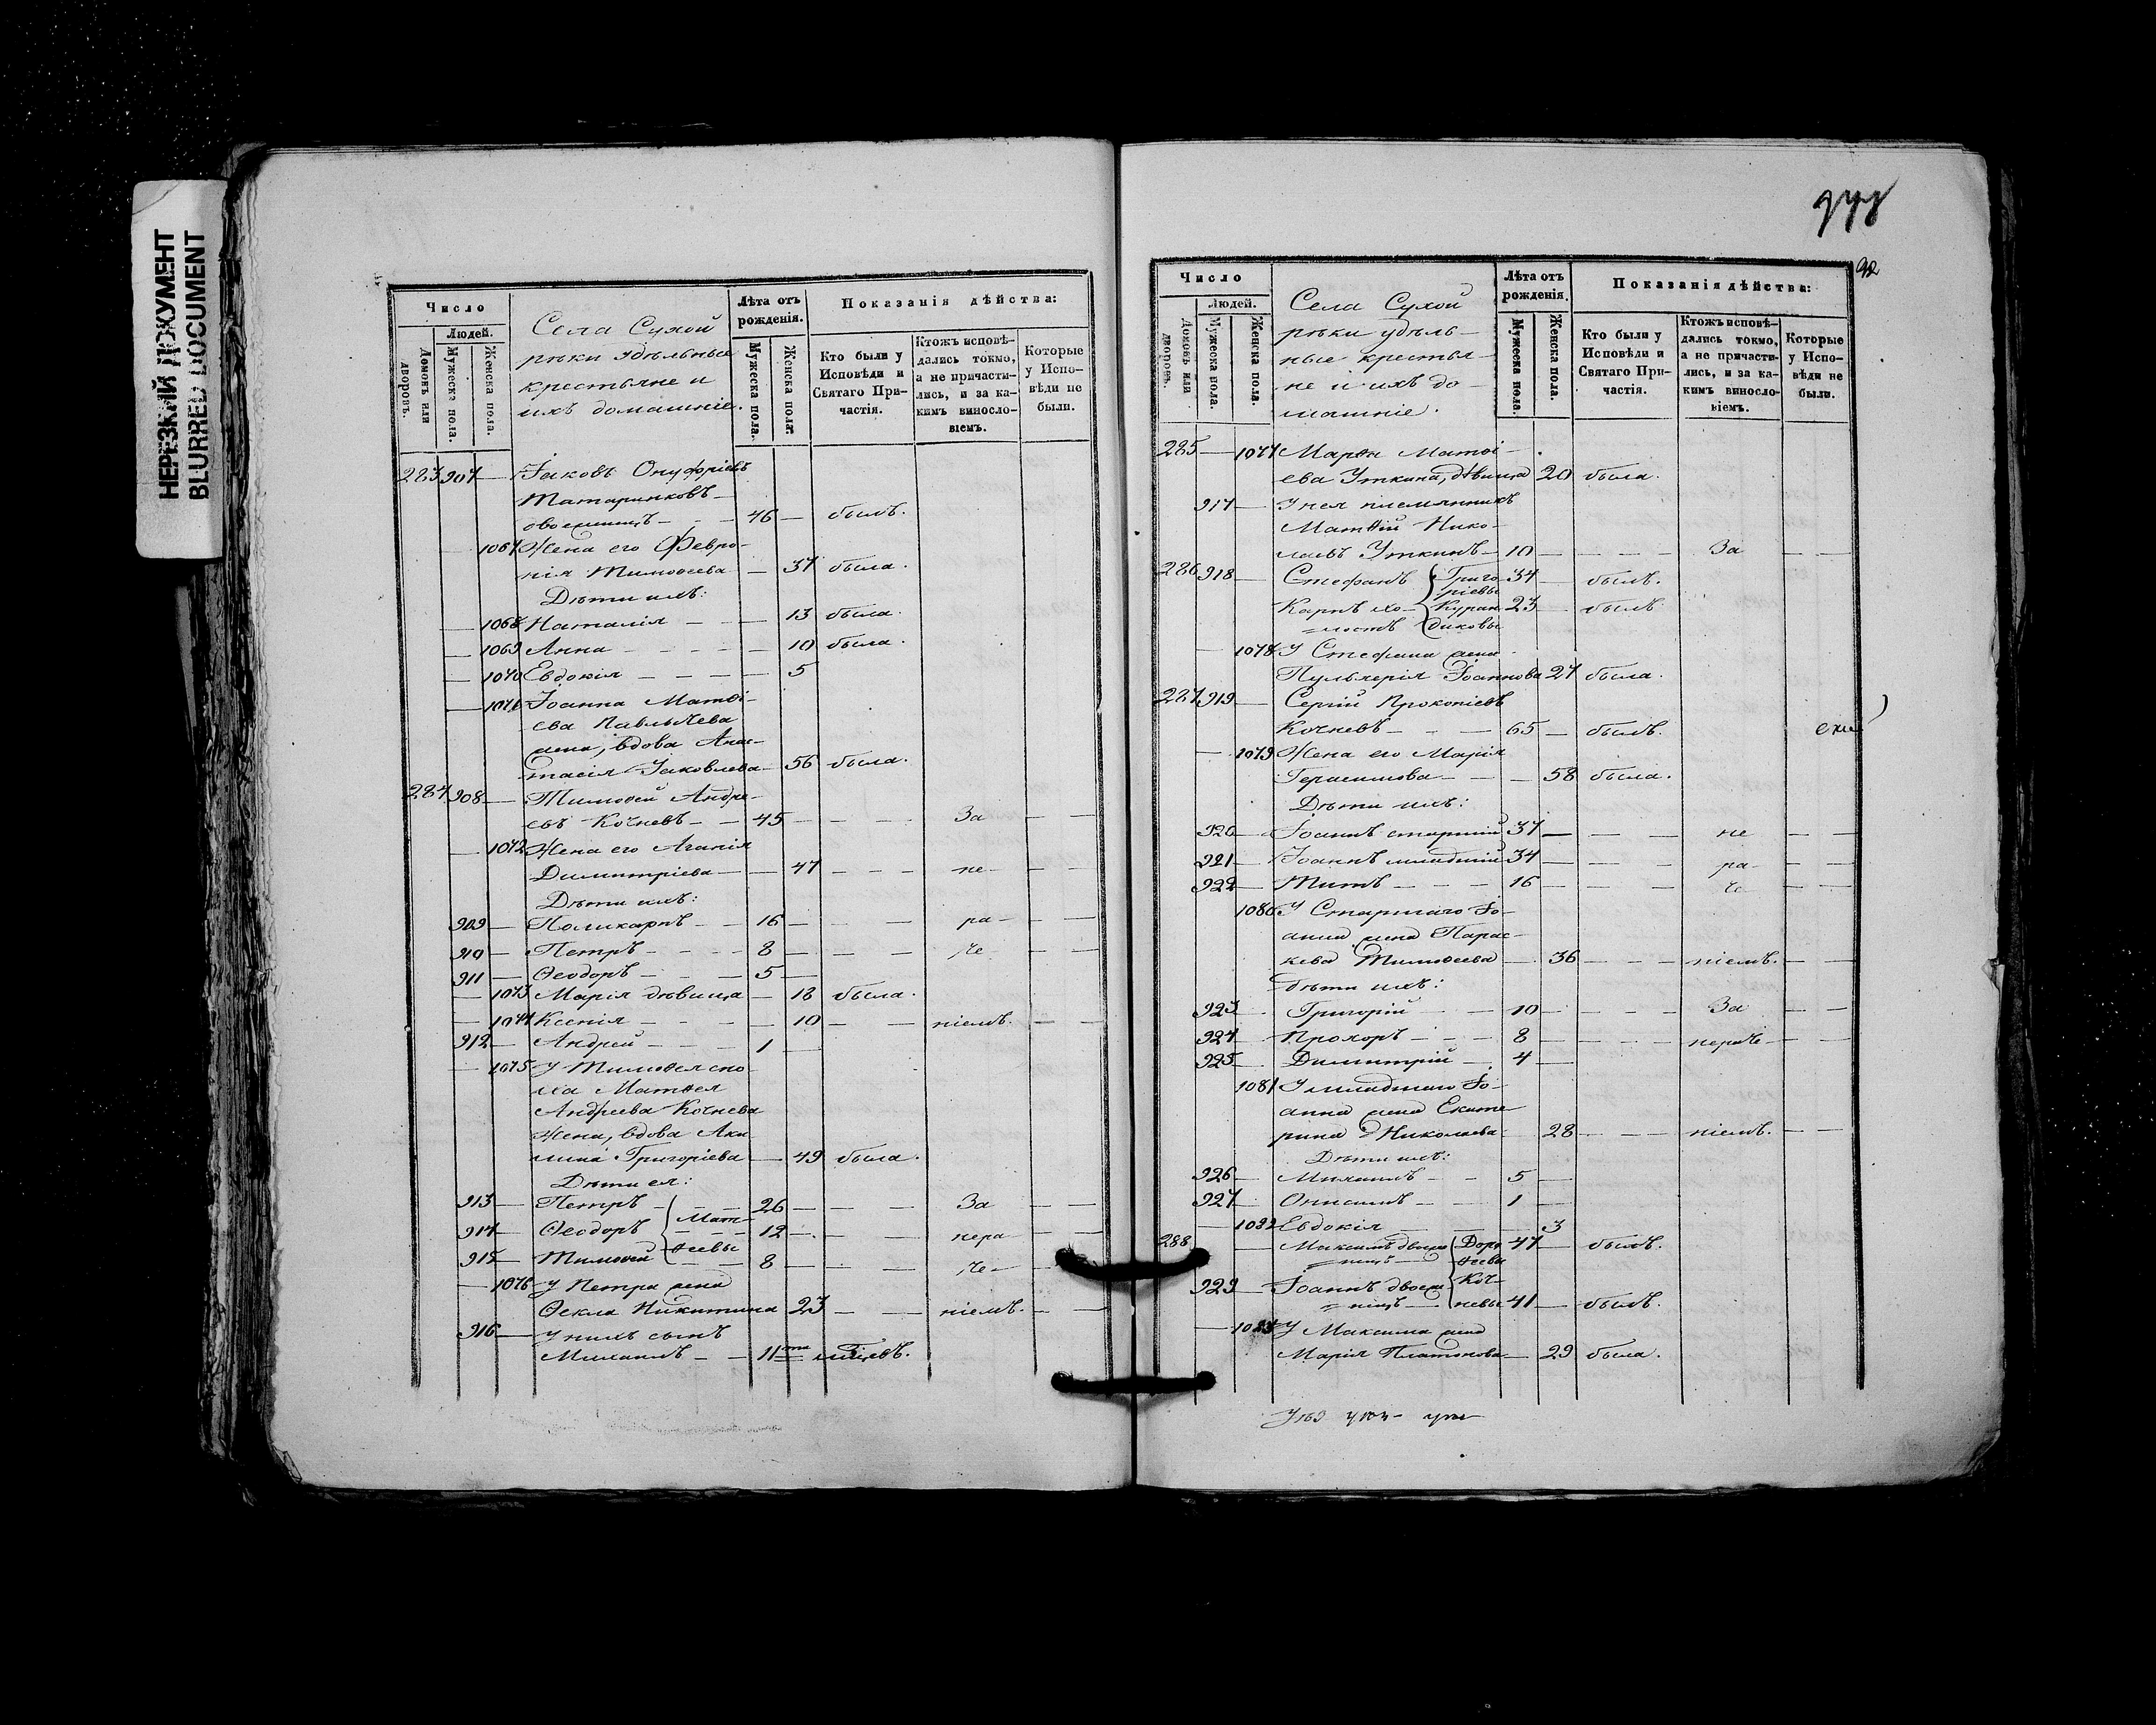 НЕРЕЗКИЙ ДОКУМЕНТ
BLURRED DOCUMENT
Число
Людей.
Домовъ или дворовъ.
Мужеска пола.
Женска пола.
Села Сухой
рѣки удѣльные
крестьяне и
ихъ домашніе.
Лѣта отъ рожденія.
Мужеска пола.
Женска пола.
Показанія дѣйства:
Кто были у Исповѣди и Святаго Причастія.
Ктожъ исповѣдались токмо, а не причастились, и за какимъ винословіемъ.
Которые у Исповѣди не были.
283 907 — Іаковъ Онуфріевъ
Татаринковъ
46 — былъ.
1067 Жена его Февро-
нія Тимоѳеева — 37 была.
Дѣти ихъ:
1068 Наталія — 13 была.
1069 Анна — 10 была.
1070 Евдокія — 5
1071 Іоанна Матѳі-
ева
жена, вдова Анас-
тасія Іаковлева — 56 была.
284 908 — Тимоѳей Андре-
евъ Кочневъ — 45 — За
1072 Жена его Агапія
Димитріева — 47 — не
Дѣти ихъ:
909 — Поликарпъ — 16 — ра-
910 — Петръ — 8 — че
911 — Ѳеодоръ — 5 —
1073 Марія дѣвица — 18 была.
1074 Ксенія — 10 — ніемъ.
912 — Андрей — 1 —
1075 У Тимоѳея сно-
ха Матѳея
Андреева Кочнева
жена, вдова Аки-
лина Григоріева — 49 была.
Дѣти ея:
913 — Петръ — Мат- 26 — За
914 — Ѳеодоръ — 12 — нера
915 — Тимоѳей ѳеевы 8 — че-
1076 У Петра жена
Ѳекла Никитина 23 — ніемъ.
916 — У нихъ сынъ
Михаилъ — 11ти
92
Число
Людей.
Домовъ или дворовъ.
Мужеска пола.
Женска пола.
Села Сухой
рѣки удѣль-
ные крестья-
не и ихъ до-
машніе.
Лѣта отъ рожденія.
Мужеска пола.
Женска пола.
Показанія дѣйства:
Кто были у Исповѣди и Святаго Причастія.
Ктожъ исповѣдались токмо, а не причастились, и за какимъ винословіемъ.
Которые у Исповѣди не были.
285 — 1077 Марѳа Матѳі-
ева Уткина, дѣвица 20 была.
917 — У нея племянникъ
Матѳій Нико-
лаевъ Уткинъ — 10 — За
286 918 — Стефанъ Григо- 34 — былъ.
ріевы
Карпъ хо- 23 — былъ
лостъ
1078 У Стефана жена
Пульхерія Іоаннова 27 была.
287 919 — Сергій Прокопіевъ
Кочневъ — 65 — былъ.
1079 Жена его Марія
Герасимова — 58 была.
Дѣти ихъ:
920 — Іоаннъ старшій 37 — не
921 — Іоаннъ младшій 34 — ра-
922 — Титъ — 16 — че
1080 У Старшаго Іо-
анна жена Парас-
кева Тимоѳеева — 36 — ніемъ.
дѣти ихъ:
923 — Григорій — 10 — За
924 — Прохоръ — 8 — нераче
925 — Димитрій — 4 —
1081 У младшаго Іо-
анна жена Екате
рина Николаева 28 — ніемъ.
Дѣти ихъ:
926 — Михаилъ — 5 —
927 — Онисимъ — 1 —
1082 Евдокія — 3
288 — Максимъ двоеже- Доро- 47 — былъ.
нецъ ѳеевы
929 — Іоаннъ двоеже- Коч-
нецъ невы 41 — былъ.
1083 У Максима жена
Марія Платонова — 29 была.